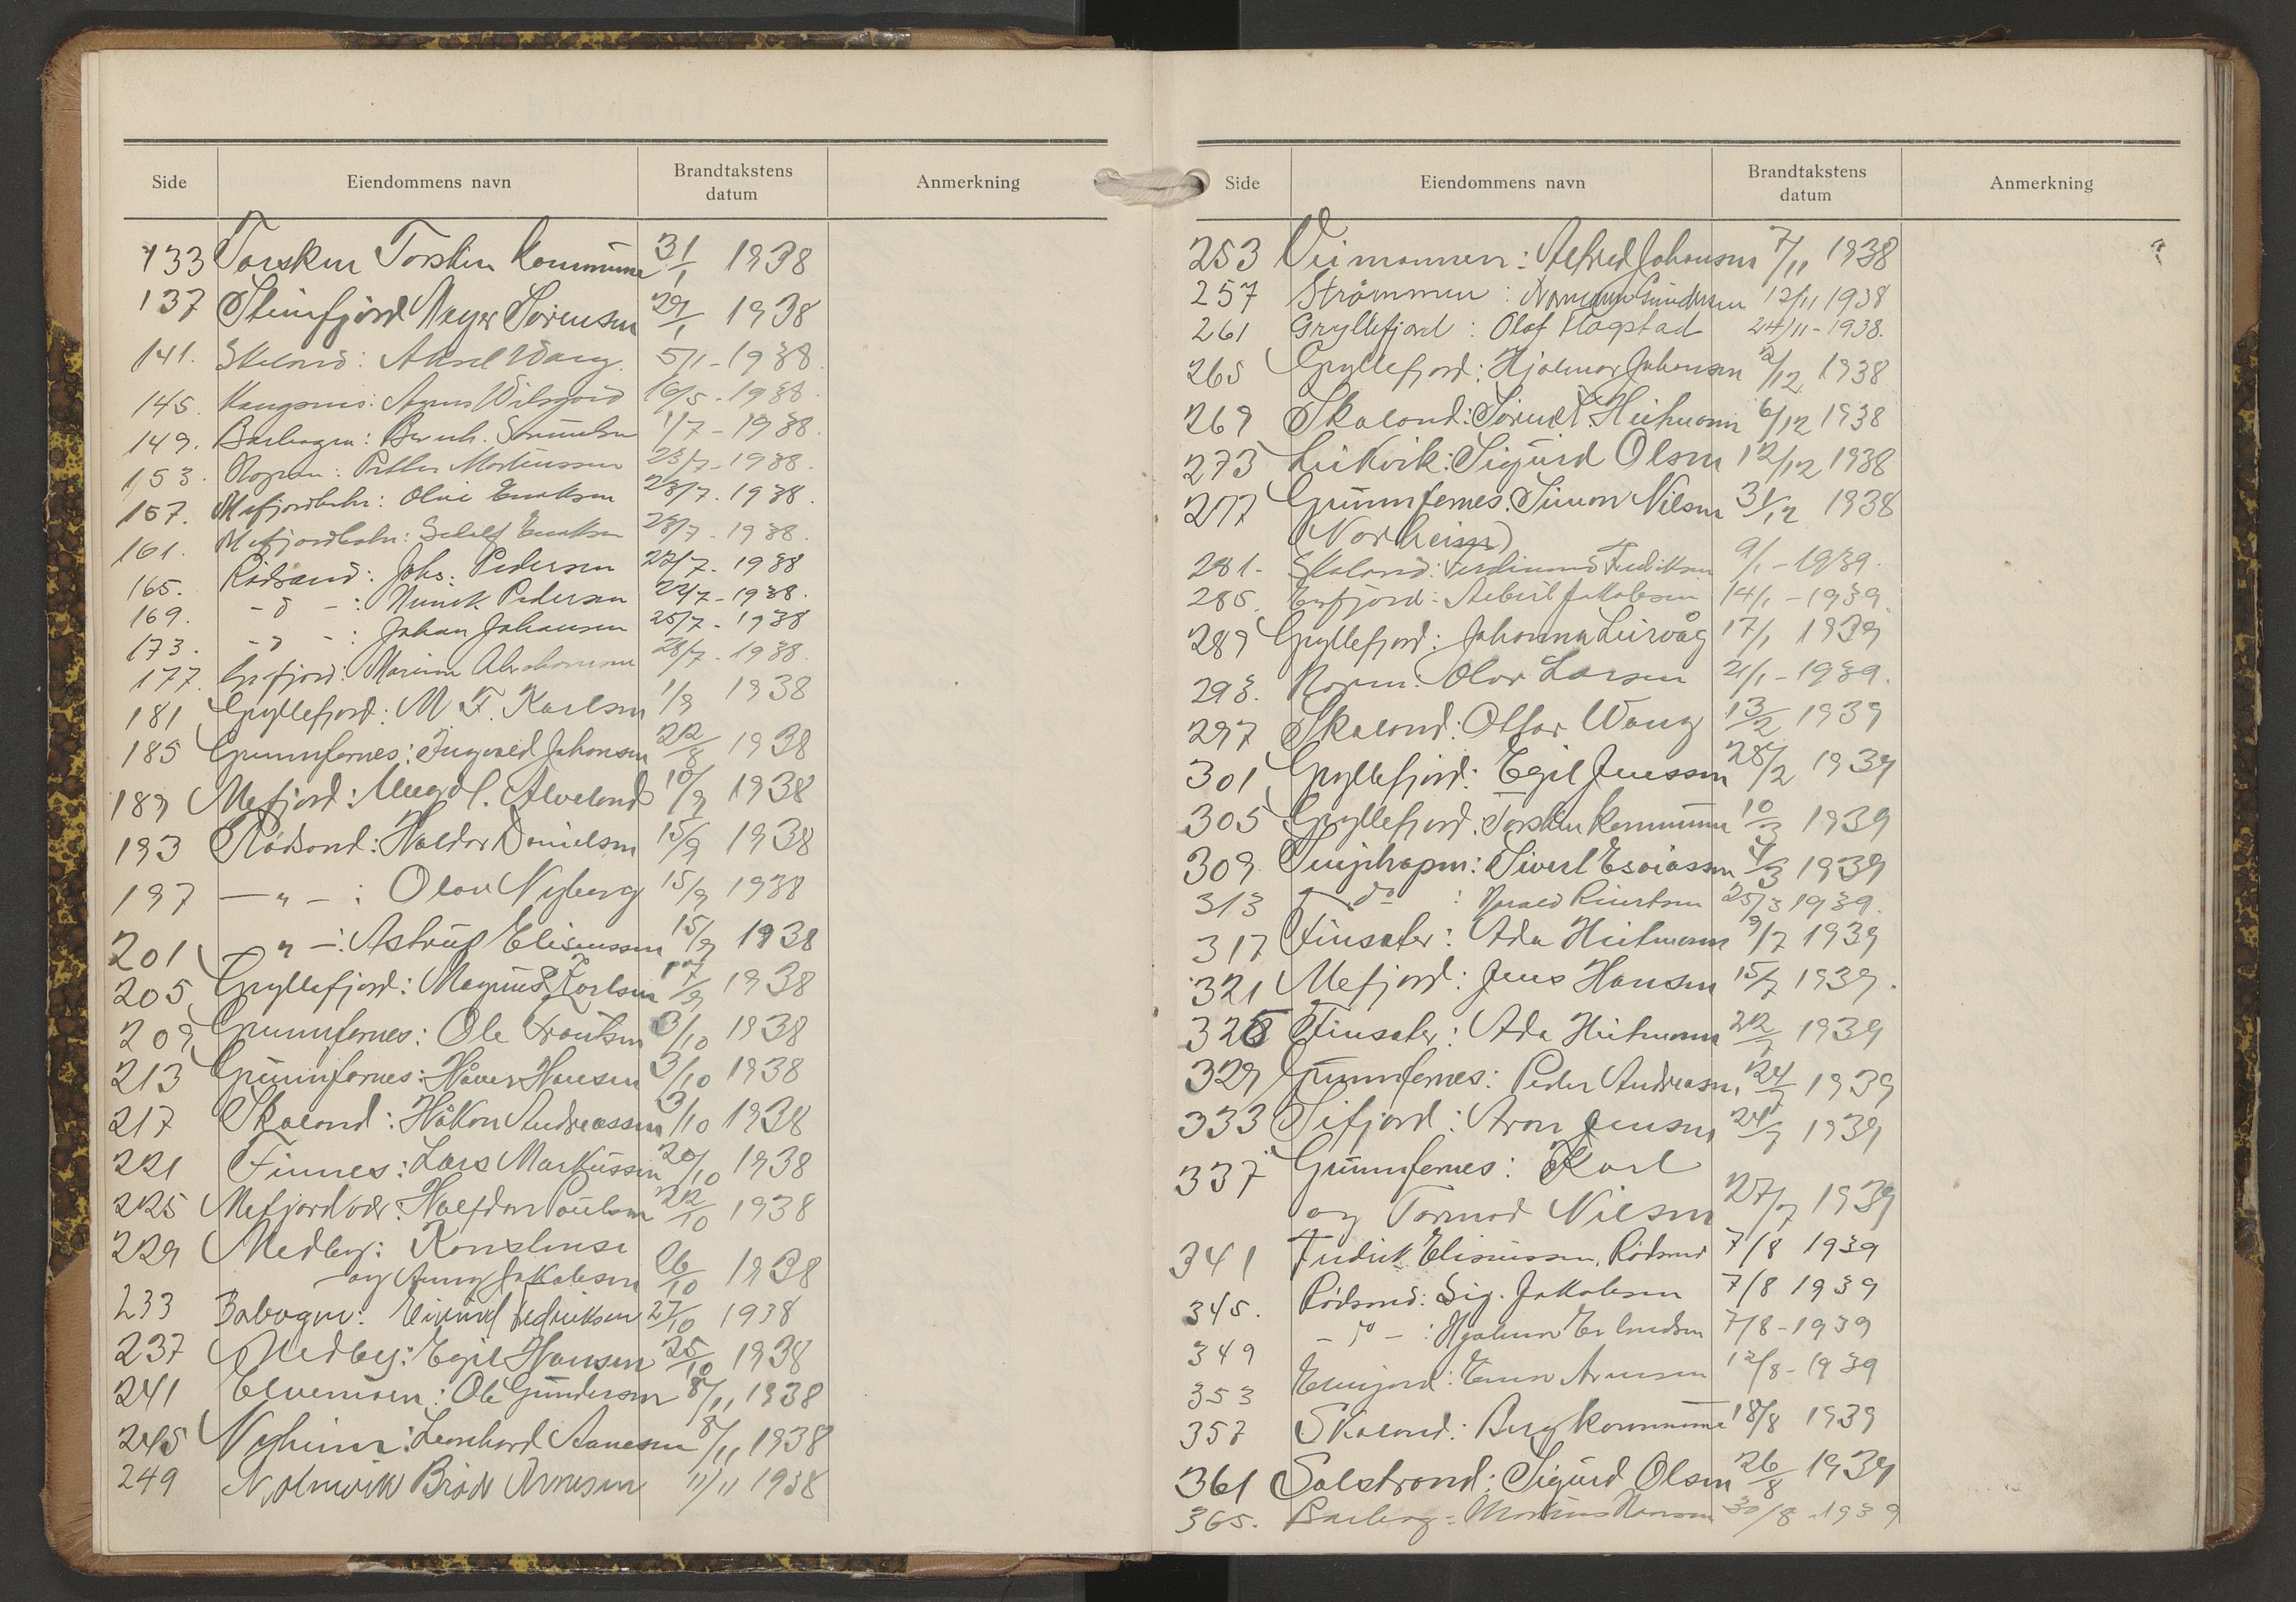 Side Eiendommens navn Brandtakstens datum Anmerkning
133 Torsken Torsken Kommune 31/1 1938
137 Steinfjord Meyer Sörensen 29/1 1938
141. Skland: Aksel Wang. 5/1-1938
145. Agnes Wilsgård 16/5-1938.
149. Barbogen: Bernh. Samuelsen 1/7-1938.
153. Petter Mortensen 23/7-1938.
157. Mefjordbotn: Eriksen 28/7.1938.
161. Mefjordbotn: Eriksen 28/7-1938.
165. Rödsand: Johs. Pedersen 22/7-1938
169. - " - : Pedersen 22/7-1938.
173. - " - : Johan Johansen 25/7-1938
177. Marius Abrahamsen 28/7.1938.
181 Gryllefjord: M F. Karlsen 1/9 1938
185 Grunnfarnes: Ingvald Johansen 22/8 1938
189 Mefjord: Alveland 10/9 1938
193 Rödsand: Haldor Danielsen 15/9 1938
197 — " — : Olav Nyberg 15/9 1938
201 — " —: Astrup Eliseussen 15/9 1938
205 Gryllefjord: Magnus Karlsen 17/9 1938
209 Grunnfarnes: Ole Frantsen 3/10 1938
213 Grunnfarnes: Håver Hansen 3/10 1938
217 Skaland: Håkon Andreassen 3/10 1938
221 Finnes: Lars Markussen 20/10 1938
225 Mefjordvær: Halfdan Paulsen 22/10 1938
229 Medby: Konstanse
og Jakobsen 26/10 1938
233 Babogen: Eivind Fredriksen 27/10 1938
237 Medby: Egil Hansen 25/10 1938
241 Elvemoen: Ole Gundersen 8/11 1938
245 Nyheim: Leonhard Aanesen 8/11 1938
249 Brödr Arnesen 11/11 1938
Side Eiendommens navn Brandtakstens datum Anmerkning
253 Alfred Johansen 7/11 1938
257 Strömmen: Gundersen 12/11 1938
261 Gryllefjord: Olaf Hagstad 24/11-1938.
265 Gryllefjord: Hjalmar Johansen 2/12 1938
269 Skaland: Heitmann 6/12 1938
273 Leikvik: Sigurd Olsen 12/12 1938
277 Grunnfarnes: Simon Nilsen 31/12 1938
(Norheim)
281. Skaland: Ferdinand Fredriksen 9/1-1939.
285. Jakobsen 14/1-1939.
289 Gryllefjord: Johanna Leirvåg 17/1 1939
293. Olav Larsen 21/1-1939.
297 Skaland: Ottar Wang 13/2 1939
301 Gryllefjord: Egil Jenssen 28/2 1939
305 Gryllefjord: Torsken Kommune 10/3 1939
309 Senjehopen: Sivert Esaiassen 4/3 1939
313 — do : Harald Reiertsen 25/3 1939.
317 Finsæter: Ada Heitmann 9/7 1939
321 Mefjord: Jens Hansen 15/7 1939.
325 Finsæter: Ada Heitmann 22/7 1939
329 Grunnfarnes: Peder Andreasen. 24/7 1939
333 Sifjord: Aron Jensen 24/7 1939
337 Grunnfarnes: Karl
og Tormod Nilsen 27/7 1939
341 Fredrik Eliseussen, Rödsand 7/8 1939
345. Rödsand: Sig. Jakobsen 7/8 1939
349 - do - : Hjalmar Erlendsen 7/8-1939
353 Arnesen 12/8-1939
357 Skaland: Berg Kommune 18/8 1939
361 Salstrand: Sigurd Olsen 26/8 1939
365. Hansen 30/8-1939